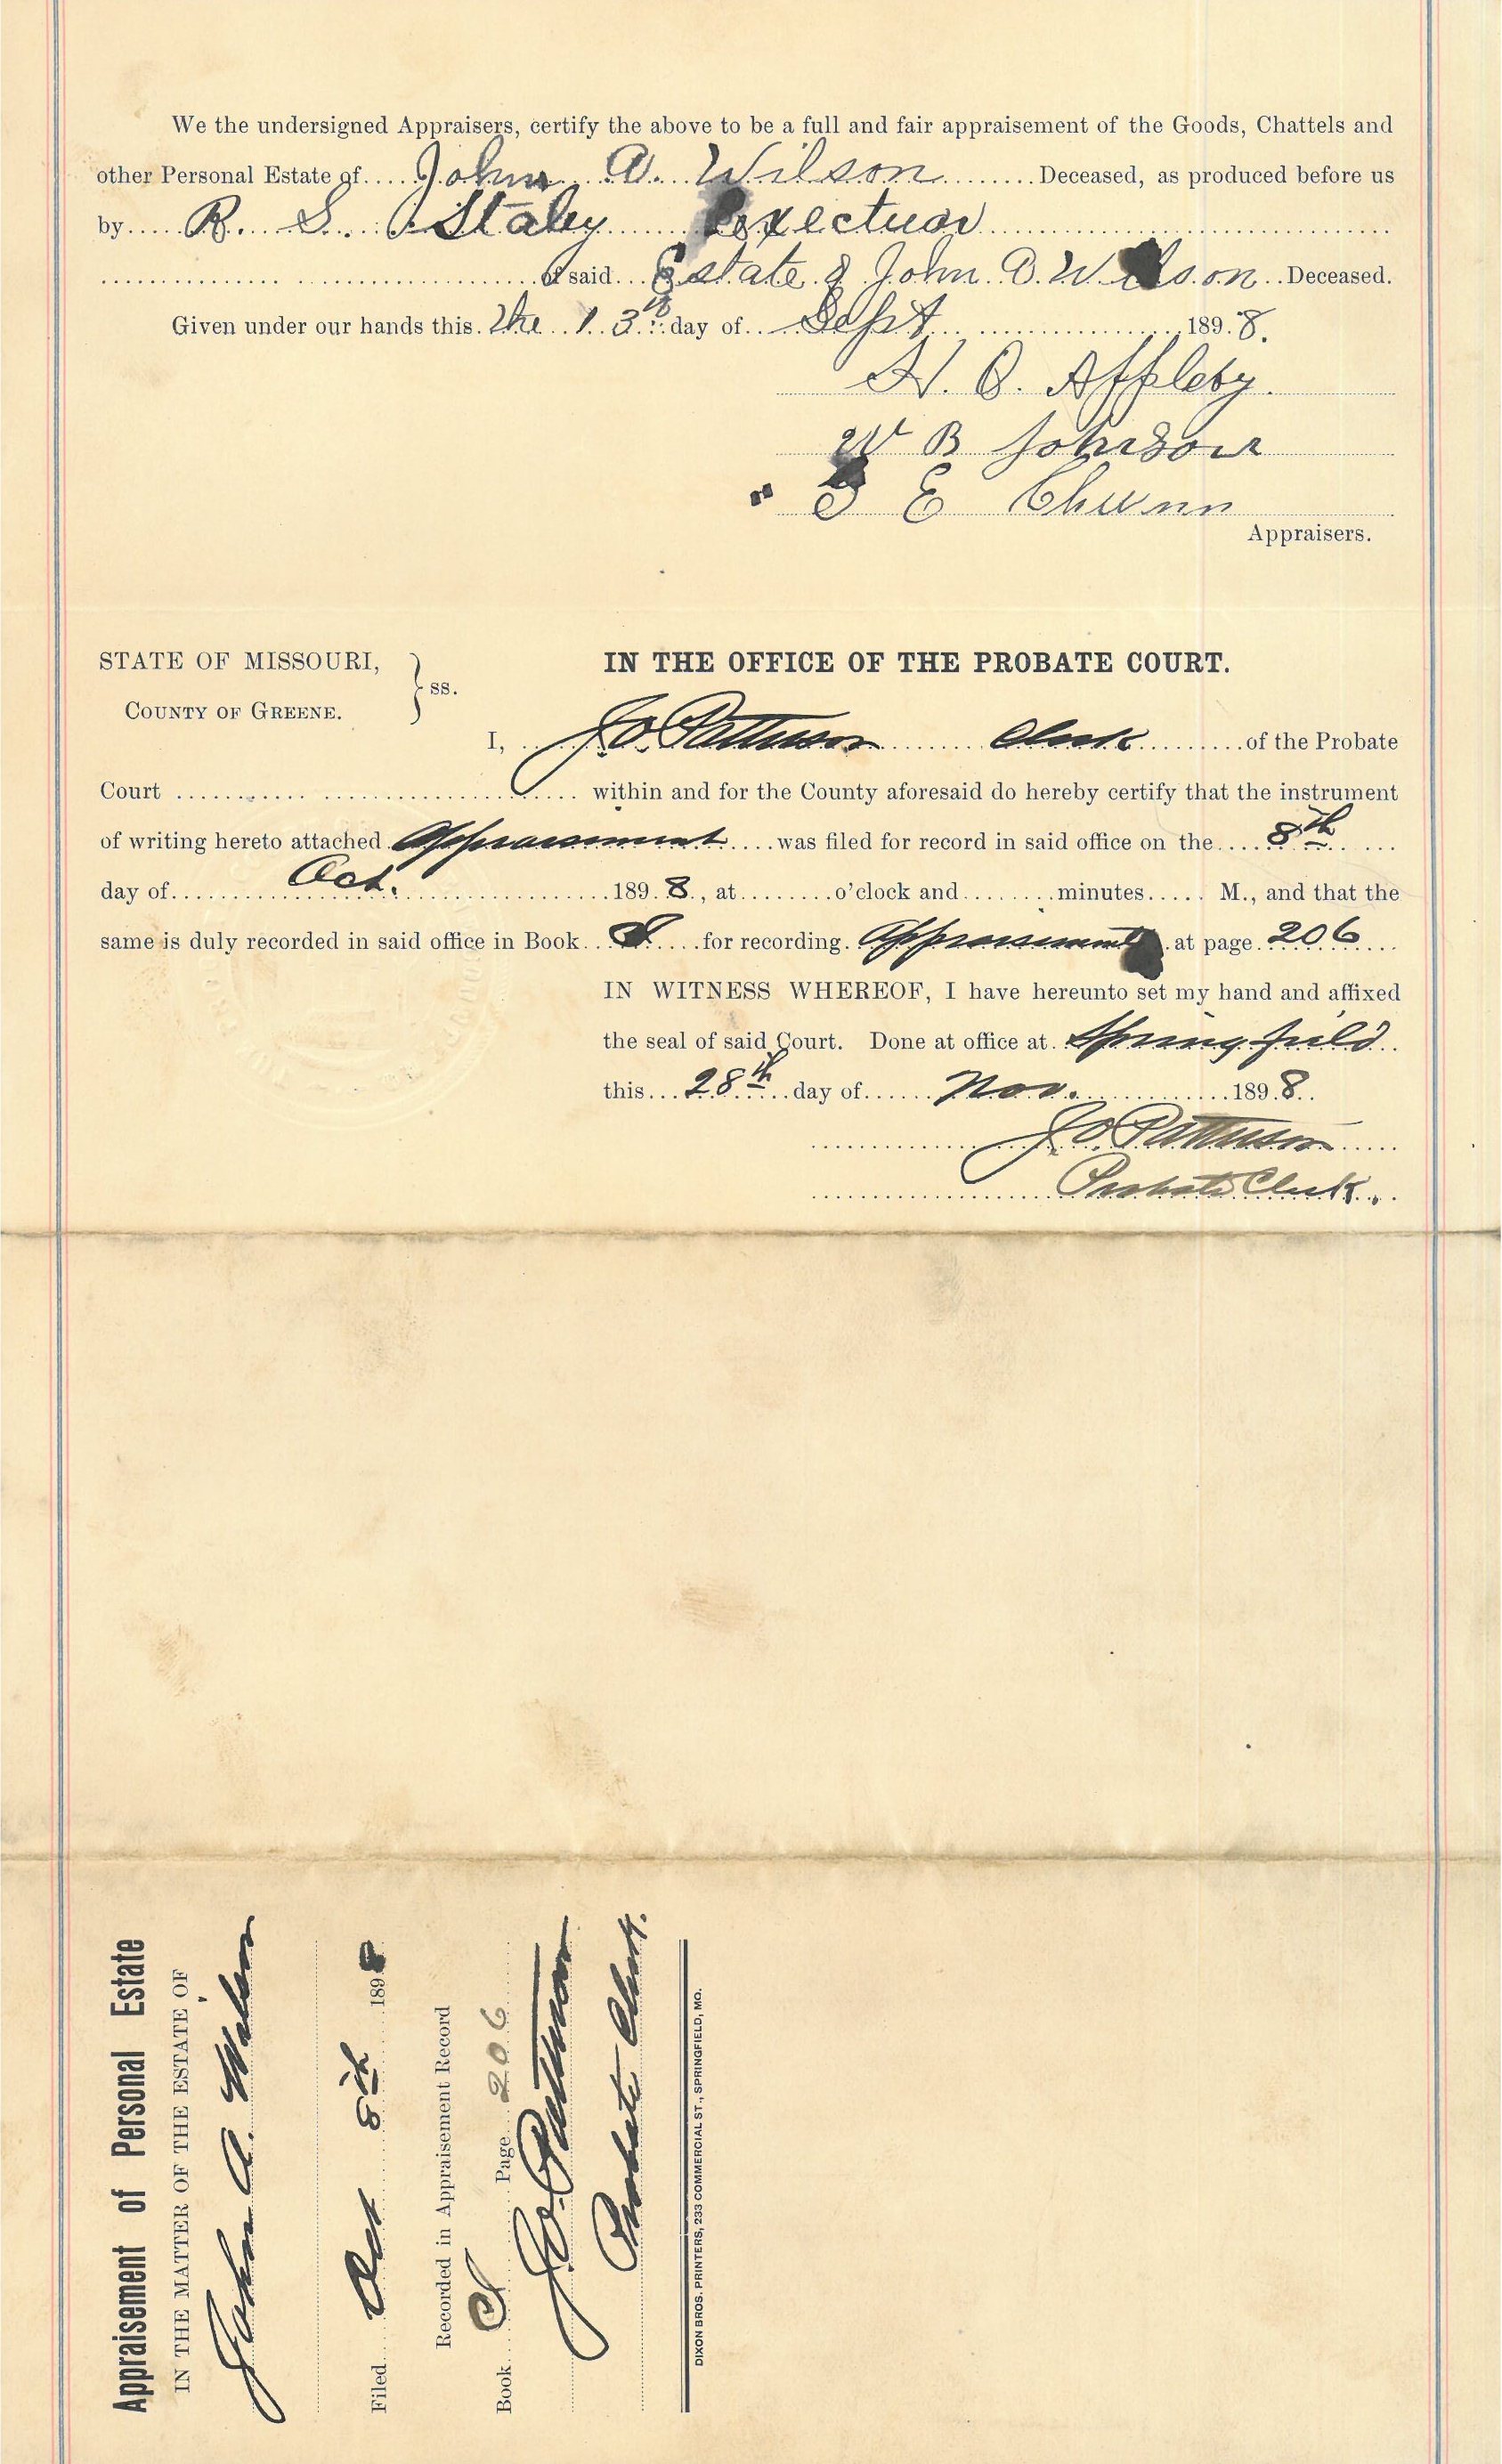 We the undersigned Appraisers, certify the above to be a full and fair appraisement of the Goods, Chattels and
other Personal Estate of John A. Wilson Deceased, as produced before us
by R. S. Staley Exectuor
of said Estate of John A. Wilson Deceased.
Given under our hands this the 13th day of Sept 1898.
H. O. Appleby.
W B Johnson
E Chunn
Appraisers.
STATE OF MISSOURI,
COUNTY OF GREENE.
ss.
IN THE OFFICE OF THE PROBATE COURT.
I, Jo Patterson Clerk of the Probate
Court within and for the County aforesaid do hereby certify that the instrument
of writing hereto attached Appraisement was filed for record in said office on the 8th
day of Oct. 1898, at o'clock and minutes M., and that the
same is duly recorded in said office in Book for recording Appraisement at page 206
IN WITNESS WHEREOF, I have hereunto set my hand and affixed
the seal of said Court. Done at office at Springfield
this 28th day of Nov. 1898.
Jo Patterson
Probate Clerk.
Appraisement of Personal Estate
IN THE MATTER OF THE ESTATE OF
John A. Wilson
Filed Oct 8th 1898
Recorded in Appraisement Record
Book Page 206
Jo Patterson
Probate Clerk.
DIXON BROS. PRINTERS, 233 COMMERCIAL ST., SPRINGFIELD, MO.